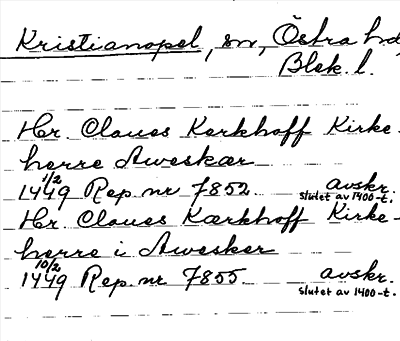 Kristianopel, sn, Östra hd,
Blek. l.
Hr. Claues Kerkhoff Kirke-
herre Aweskær
1/2
1449 Rep. nr 7852 avskr.
slutet av 1400-t.
Hr. Claues Kærkhoff Kirke-
herre i Awesker
10/2
1449 Rep. nr 7855 avskr.
slutet av 1400-t.